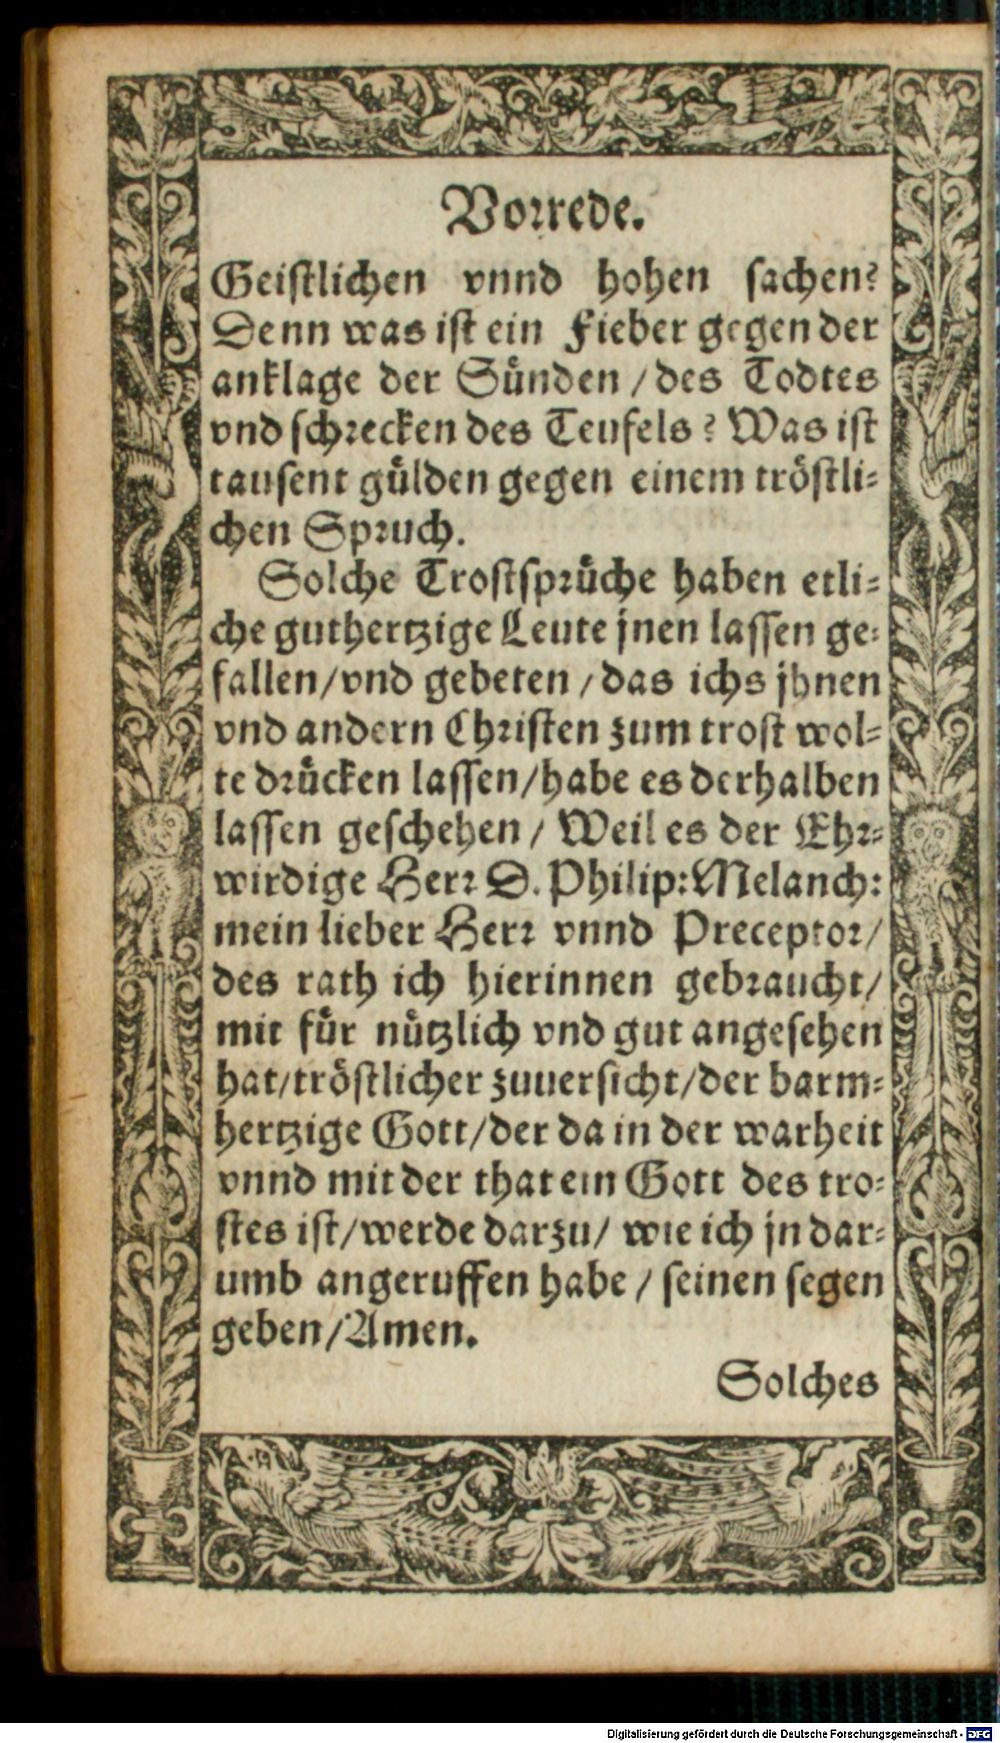 Vorrede.
Geistlichen vnnd hohen sachen?
Denn was ist ein Fieber gegen der
anklage der Sünden / des Todtes
vnd schrecken des Teufels? Was ist
tausent gülden gegen einem tröstli=
chen Spruch.
Solche Trostsprüche haben etli=
che guthertzige Leute jnen lassen ge=
fallen / vnd gebeten / das ichs jhnen
vnd andern Christen zum trost wol=
te drücken lassen / habe es derhalben
lassen geschehen / Weil es der Ehr=
wirdige Herr D. Philip: Melanch:
mein lieber Herr vnnd Preceptor /
des rath ich hierinnen gebraucht /
mit für nützlich vnd gut angesehen
hat / tröstlicher zuuersicht / der barm=
hertzige Gott / der da in der warheit
vnnd mit der that ein Gott des tro=
stes ist / werde darzu / wie ich jn dar=
umb angeruffen habe / seinen segen
geben / Amen.
Solches
Digitalisierung gefördert durch die Deutsche Forschungsgemeinschaft - DFG